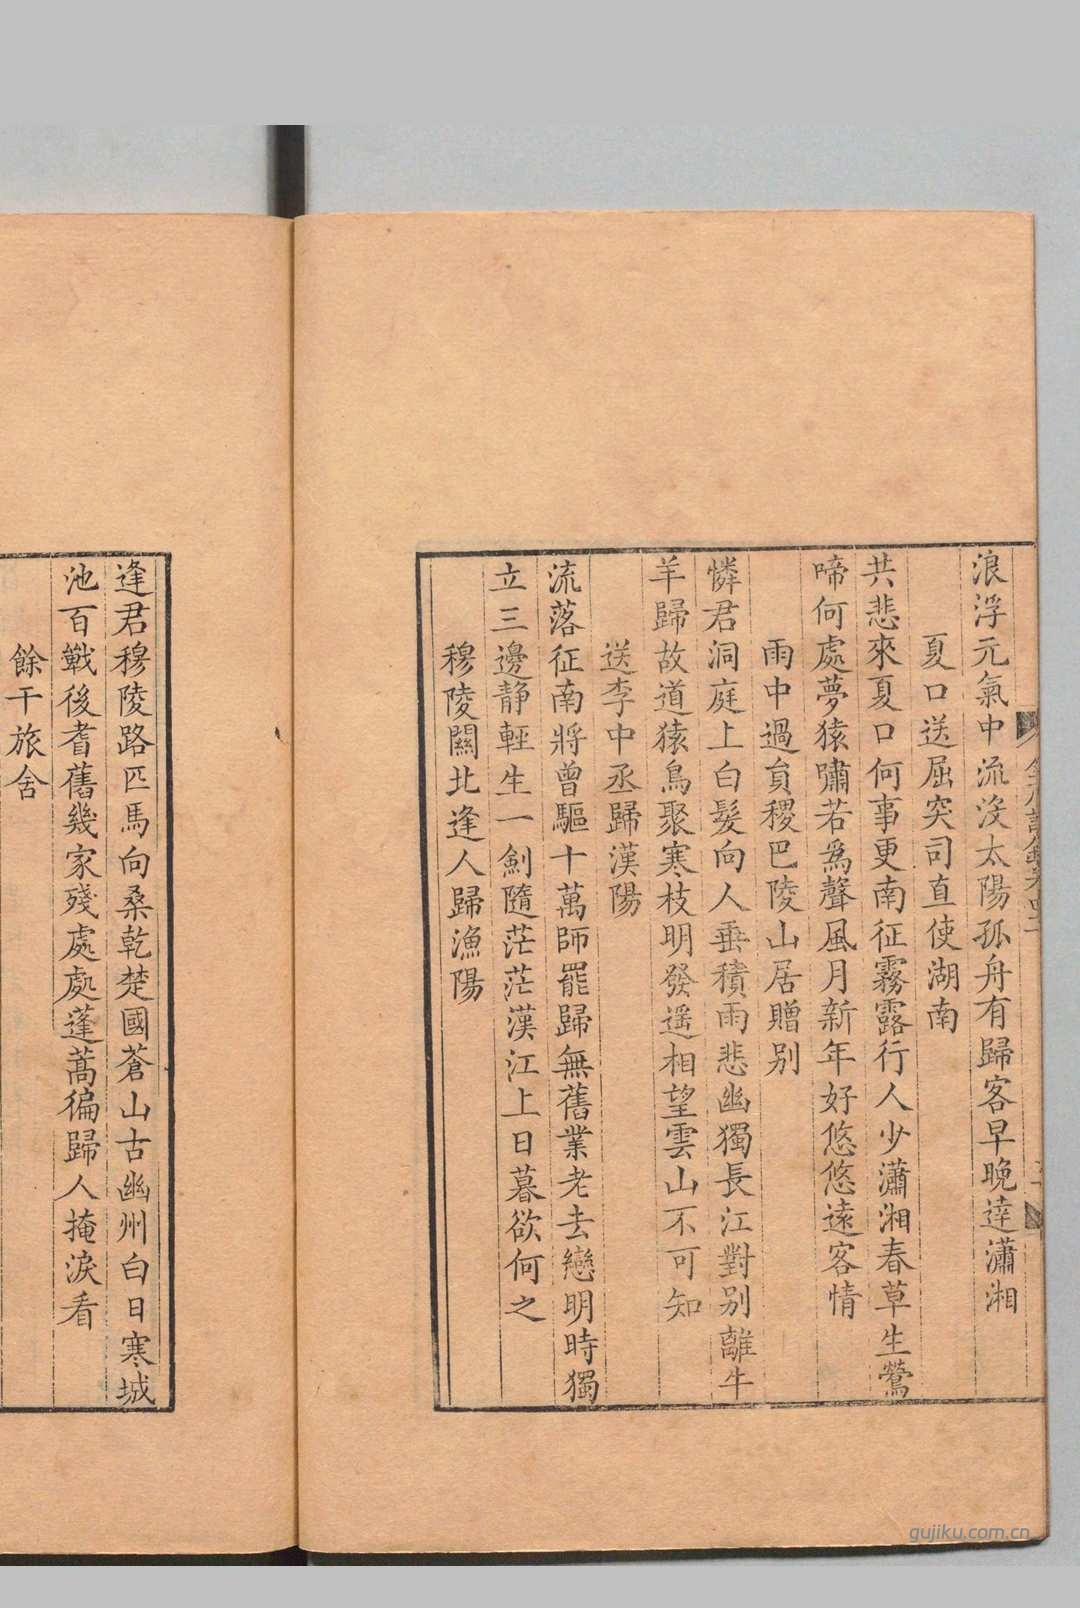 浪浮元氣中流没太陽孤舟有歸客早晚達瀟湘
夏口送屈突司直使湖南
共悲來夏口何事更南征霧露行人少瀟湘春草生鶯
啼何處夢猿嘯若爲聲風月新年好悠悠遠客情
雨中過員稷巴陵山居贈别
憐君洞庭上白髮向人垂積雨悲幽獨長江對别離牛
羊歸故道猿鳥聚寒枝明發遥相望雲山不可知
送李中丞歸漢陽
流落征南將曾驅十萬師罷歸無舊業老去戀明時獨
立三邊静輕生一劍隨茫茫漢江上日暮欲何之
穆陵關北逢人歸漁陽
逢君穆陵路匹馬向桑乾楚國蒼山古幽州白日寒城
池百戰後耆舊幾家殘處處蓬蒿徧歸人掩淚看
餘干旅舍
gujiku.com.cn